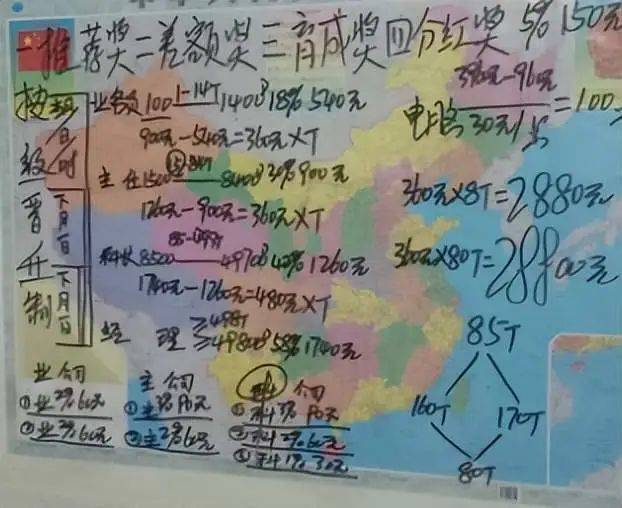 一推荐奖二差额奖三育成奖四分红奖 5% 150元
按 级 晋 升 制
业务员 100 1-14T 1400 18% 540元
900元-540元=360元×T
主任 1500 8400 30% 900元
1260元-900元=360元×T
科长 8500 49700 42% 1260元
1740元-1260元=480元×T
≥498T
经理 ≥49800 58% 1740元
下月1日
下月1日
电脑 30元/
=100
360元×8T=2880元
360元×80T=28800元
85T
160T 170T
80T
业 同
①业3%60元
②业2%60元
主 同
①主3%90元
②主2%60元
科 同
①科3%90元
②科2%60元
③科1%30元